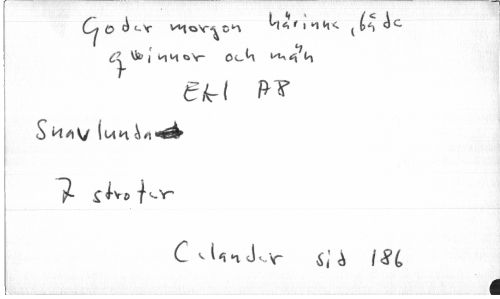 Goder morgon härinne, både
qvinnor och män
EkI A8
Snavlunda
7 strofer
Celander sid 186